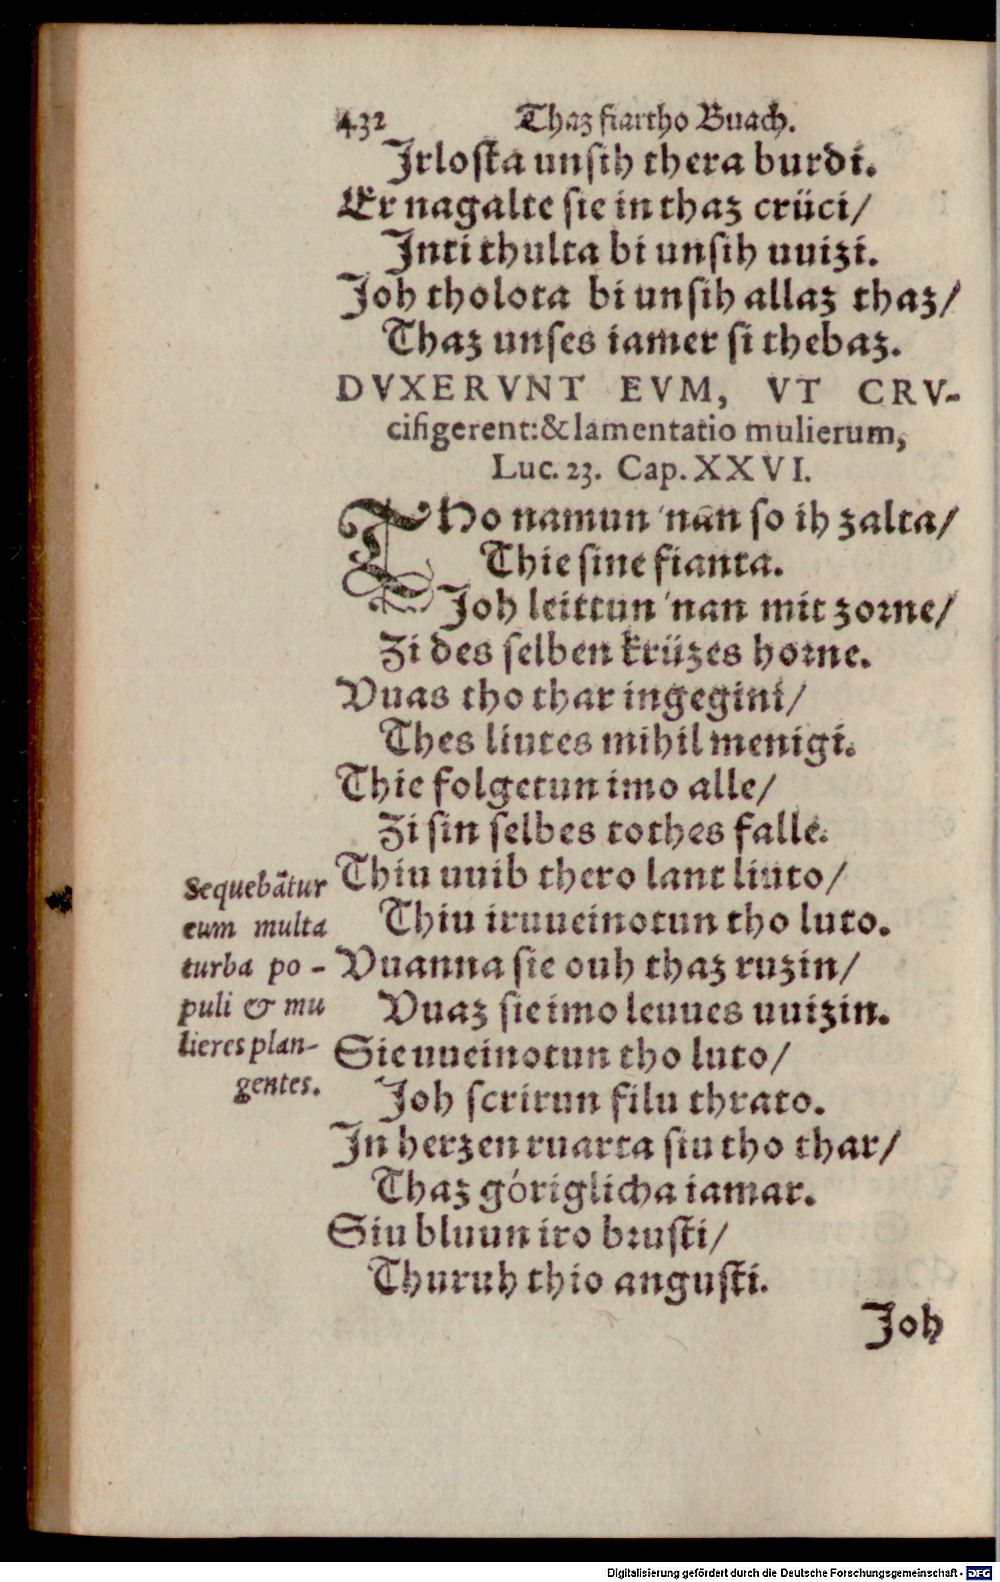 432 Thaz fiartho Buach.
Jrloſta unſih thera burdi.
Er nagalte ſie in thaz crüci/
Jnti thulta bi unſih uuizi.
Joh tholota bi unſih allaz thaz/
Thaz unſes iamer ſi thebaz.
DVXERVNT EVM, VT CRV-
cifigerent: & lamentatio mulierum,
Luc. 23. Cap. XXVI.
THo namun 'nan ſo ih zalta/
Thie ſine fianta.
Joh leittun 'nan mit zorne/
Zi des ſelben krüzes horne.
Vuas tho thar ingegini/
Thes liutes mihil menigi.
Thie folgetun imo alle/
Zi ſin ſelbes tothes falle.
Thiu uuib thero lant liuto/
Thiu iruueinotun tho luto.
Vuanna ſie ouh thaz ruzin/
Vuaz ſie imo leuues uuizin.
Sie uueinotun tho luto/
Joh ſcrirun filu thrato.
Jn herzen ruarta ſiu tho thar/
Thaz góriglicha iamar.
Siu bluun iro bruſti/
Thuruh thio anguſti.
Joh
Sequebātur
eum multa
turba po-
puli & mu
lieres plan-
gentes.
Digitalisierung gefördert durch die Deutsche Forschungsgemeinschaft - DFG